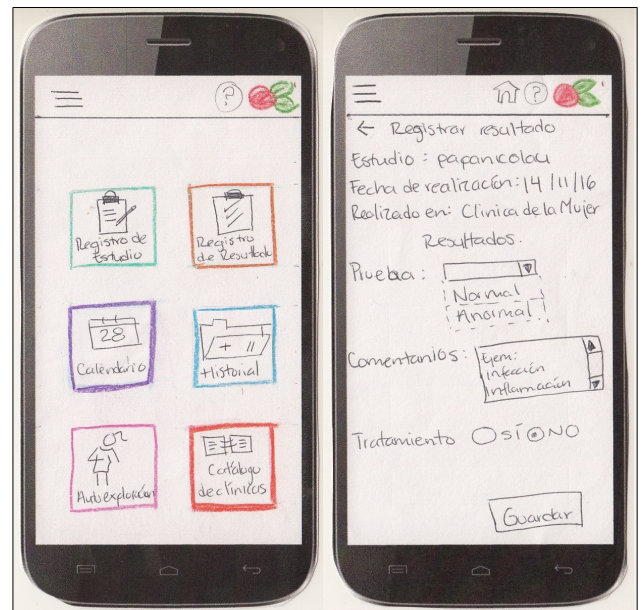 ?
Registro de
Estudio
Registro
de Resultado
28
Calendario
Historial
Autoexploración
Catálogo
de clínicas
?
← Registrar resultado
Estudio : papanicolau
Fecha de realización: 14 /11/16
Realizado en: Clinica de la Mujer
Resultados.
Prueba :
Normal
Anormal
Comentarios :
Ejem:
infección
inflamación
Tratamiento SÍ NO
Guardar